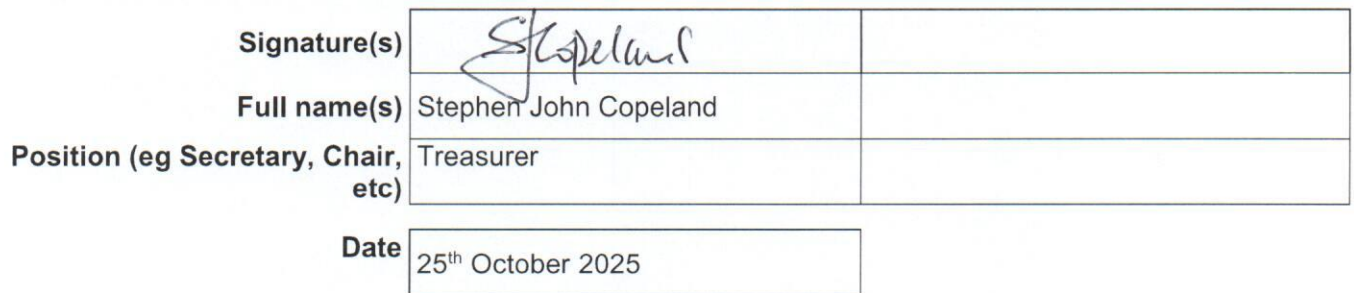 Signature(s) SJCopeland
Full name(s) Stephen John Copeland
Position (eg Secretary, Chair, Treasurer
etc)
Date 25th October 2025